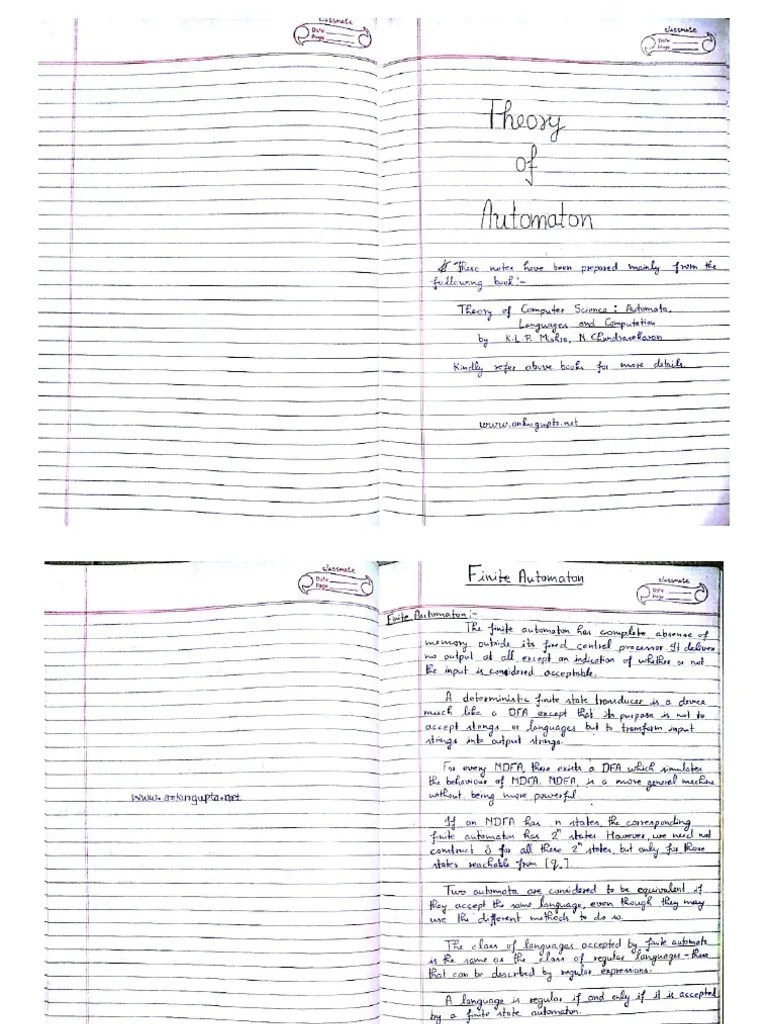 classmate
Date
Page
classmate
Date
Page
Theory
of
Automaton
These notes have been prepared mainly from the
following book:-
Theory of Computer Science: Automata,
Languages and Computation
by K.L.P. Mishra, N. Chandrasekaran
Kindly refer above books for more details.
www.ankurgupta.net
classmate
Date
Page
www.ankurgupta.net
Finite Automaton
classmate
Date
Page
Finite Automaton:-
The finite automaton has complete absence of
memory outside its fixed control processor. It delivers
no output at all, except an indication of whether or not
the input is considered acceptable.
A deterministic finite state transducer is a device
much like a DFA except that its purpose is not to
accept strings or languages but to transform input
strings into output strings.
For every NDFA, there exists a DFA which simulates
the behaviour of NDFA. NDFA, is a more general machine
without being more powerful
If an NDFA has n states, the corresponding
finite automaton has 2ⁿ states. However, we need not
construct δ for all these 2ⁿ states, but only for those
states reachable from [q₀]
Two automata are considered to be equivalent if
they accept the same language, even though they may
use the different methods to do so.
The class of languages accepted by finite automata
is the same as the class of regular languages - those
that can be described by regular expressions.
A language is regular if and only if it is accepted
by a finite state automaton.